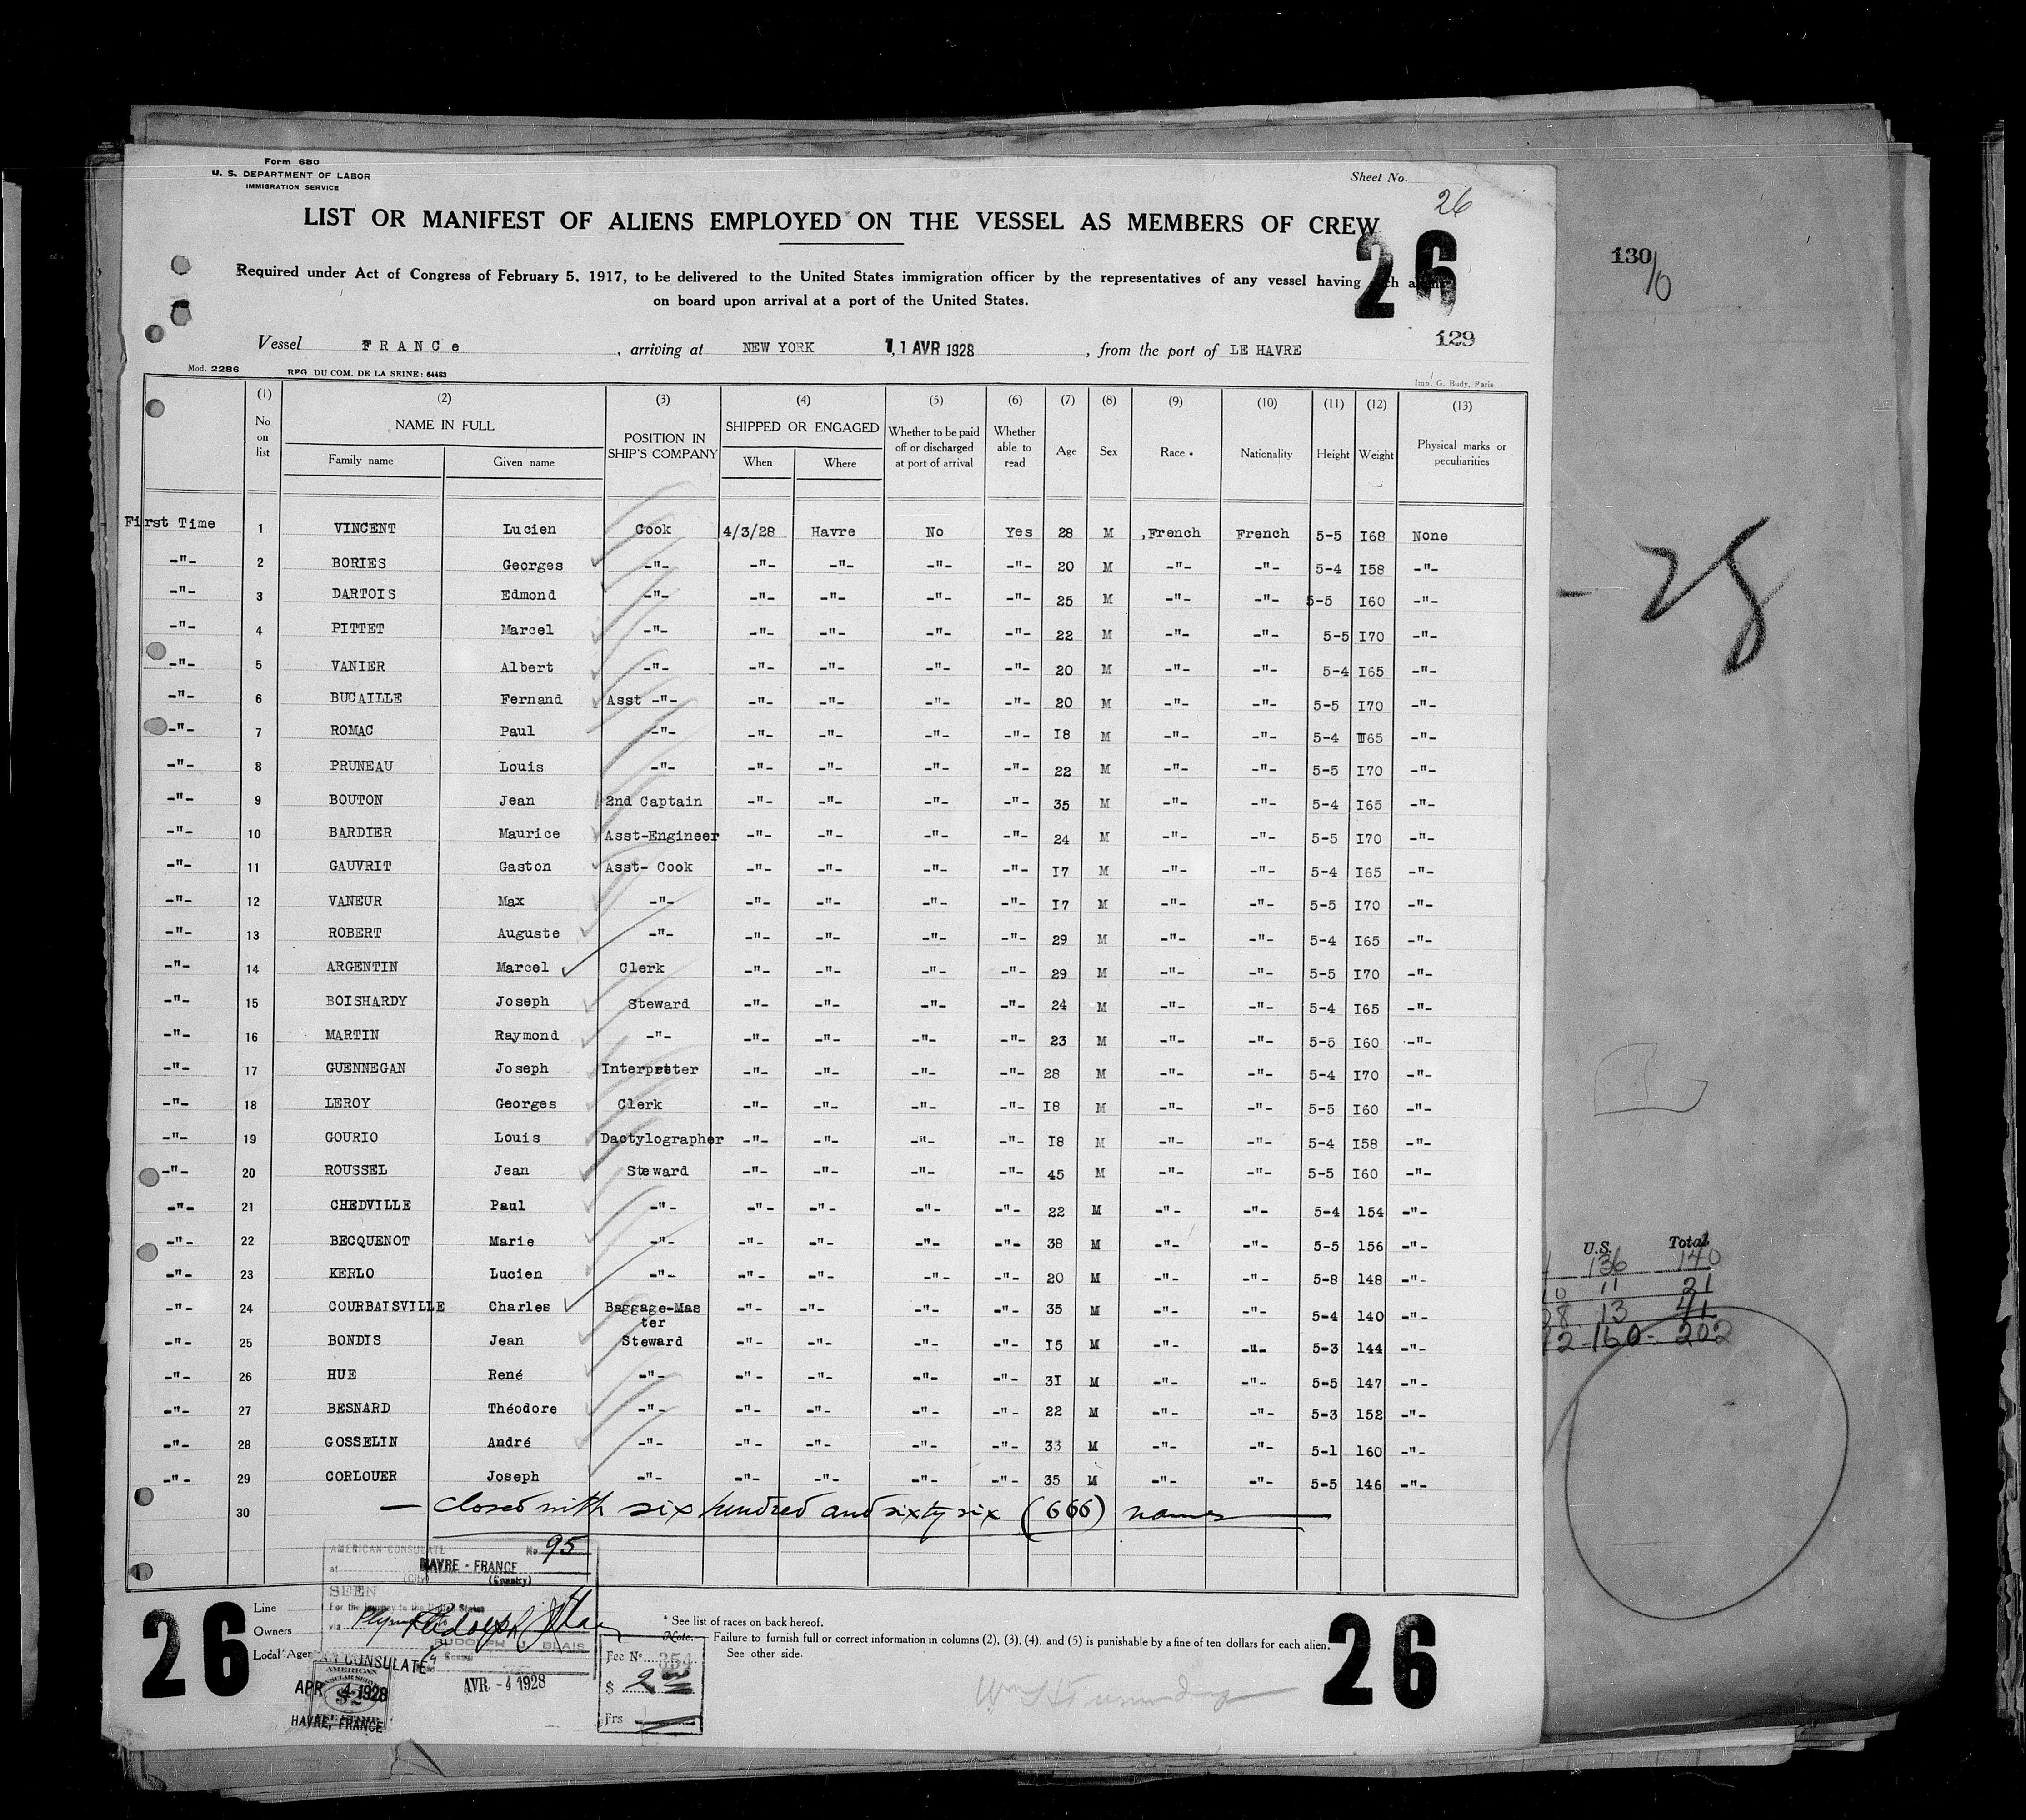 Form 680
U. S. DEPARTMENT OF LABOR
IMMIGRATION SERVICE
Sheet No.
26
LIST OR MANIFEST OF ALIENS EMPLOYED ON THE VESSEL AS MEMBERS OF CREW
26
Required under Act of Congress of February 5, 1917, to be delivered to the United States immigration officer by the representatives of any vessel having such aliens
on board upon arrival at a port of the United States.
130
129
Vessel FRANCe , arriving at NEW YORK 11 AVR 1928 , from the port of LE HAVRE
Mod. 2286 REG DU COM. DE LA SEINE: 64483 Imp. G. Budy, Paris
(1) (2) (3) (4) (5) (6) (7) (8) (9) (10) (11) (12) (13)
No on list NAME IN FULL Family name Given name POSITION IN SHIP'S COMPANY SHIPPED OR ENGAGED When Where Whether to be paid off or discharged at port of arrival Whether able to read Age Sex Race * Nationality Height Weight Physical marks or peculiarities
First Time 1 VINCENT Lucien Cook 4/3/28 Havre No Yes 28 M French French 5-5 I68 None
-"- 2 BORIES Georges -"- -"- -"- -"- -"- 20 M -"- -"- 5-4 I58 -"-
-"- 3 DARTOIS Edmond -"- -"- -"- -"- -"- 25 M -"- -"- 5-5 I60 -"-
-"- 4 PITTET Marcel -"- -"- -"- -"- -"- 22 M -"- -"- 5-5 I70 -"-
-"- 5 VANIER Albert -"- -"- -"- -"- -"- 20 M -"- -"- 5-4 I65 -"-
-"- 6 BUCAILLE Fernand Asst -"- -"- -"- -"- -"- 20 M -"- -"- 5-5 I70 -"-
-"- 7 ROMAC Paul -"- -"- -"- -"- -"- I8 M -"- -"- 5-4 I65 -"-
-"- 8 PRUNEAU Louis -"- -"- -"- -"- -"- 22 M -"- -"- 5-5 I70 -"-
-"- 9 BOUTON Jean 2nd Captain -"- -"- -"- -"- 35 M -"- -"- 5-4 I65 -"-
-"- 10 BARDIER Maurice Asst-Engineer -"- -"- -"- -"- 24 M -"- -"- 5-5 I70 -"-
-"- 11 GAUVRIT Gaston Asst- Cook -"- -"- -"- -"- I7 M -"- -"- 5-4 I65 -"-
-"- 12 VANEUR Max -"- -"- -"- -"- -"- I7 M -"- -"- 5-5 I70 -"-
-"- 13 ROBERT Auguste -"- -"- -"- -"- -"- 29 M -"- -"- 5-4 I65 -"-
-"- 14 ARGENTIN Marcel Clerk -"- -"- -"- -"- 29 M -"- -"- 5-5 I70 -"-
-"- 15 BOISHARDY Joseph Steward -"- -"- -"- -"- 24 M -"- -"- 5-4 I65 -"-
-"- 16 MARTIN Raymond -"- -"- -"- -"- -"- 23 M -"- -"- 5-5 I60 -"-
-"- 17 GUENNEGAN Joseph Interpreter -"- -"- -"- -"- 28 M -"- -"- 5-4 I70 -"-
-"- 18 LEROY Georges Clerk -"- -"- -"- -"- I8 M -"- -"- 5-5 I60 -"-
-"- 19 GOURIO Louis Dactylographer -"- -"- -"- -"- I8 M -"- -"- 5-4 I58 -"-
-"- 20 ROUSSEL Jean Steward -"- -"- -"- -"- 45 M -"- -"- 5-5 I60 -"-
-"- 21 CHEDVILLE Paul -"- -"- -"- -"- -"- 22 M -"- -"- 5-4 154 -"-
-"- 22 BECQUENOT Marie -"- -"- -"- -"- -"- 38 M -"- -"- 5-5 156 -"-
-"- 23 KERLO Lucien -"- -"- -"- -"- -"- 20 M -"- -"- 5-8 148 -"-
-"- 24 COURBAISVILLE Charles Baggage-Mas -"- -"- -"- -"- 35 M -"- -"- 5-4 140 -"-
ter
-"- 25 BONDIS Jean Steward -"- -"- -"- -"- I5 M -"- -"- 5-3 144 -"-
-"- 26 HUE René -"- -"- -"- -"- -"- 3I M -"- -"- 5-5 147 -"-
-"- 27 BESNARD Théodore -"- -"- -"- -"- -"- 22 M -"- -"- 5-3 152 -"-
-"- 28 GOSSELIN André -"- -"- -"- -"- -"- 33 M -"- -"- 5-1 160 -"-
-"- 29 CORLOUER Joseph -"- -"- -"- -"- -"- 35 M -"- -"- 5-5 146 -"-
30 — closed with six hundred and sixty six (666) names —
AMERICAN CONSULATE No. 95
at HAVRE - FRANCE
(City) (Country)
SEEN
For the journey to the United States
via
RUDOLPH J. BLAIS
Consul
26
Line
Owners
Local Agen
CONSULATE
AMERICAN
APR 4 1928
$2
HAVRE, FRANCE
AVR -4 1928
* See list of races on back hereof.
Note.— Failure to furnish full or correct information in columns (2), (3), (4), and (5) is punishable by a fine of ten dollars for each alien.
See other side.
Fee No 354
$ 2.00
Frs
26
- 28
U.S. Total
136 140
11 21
13 41
160 - 202